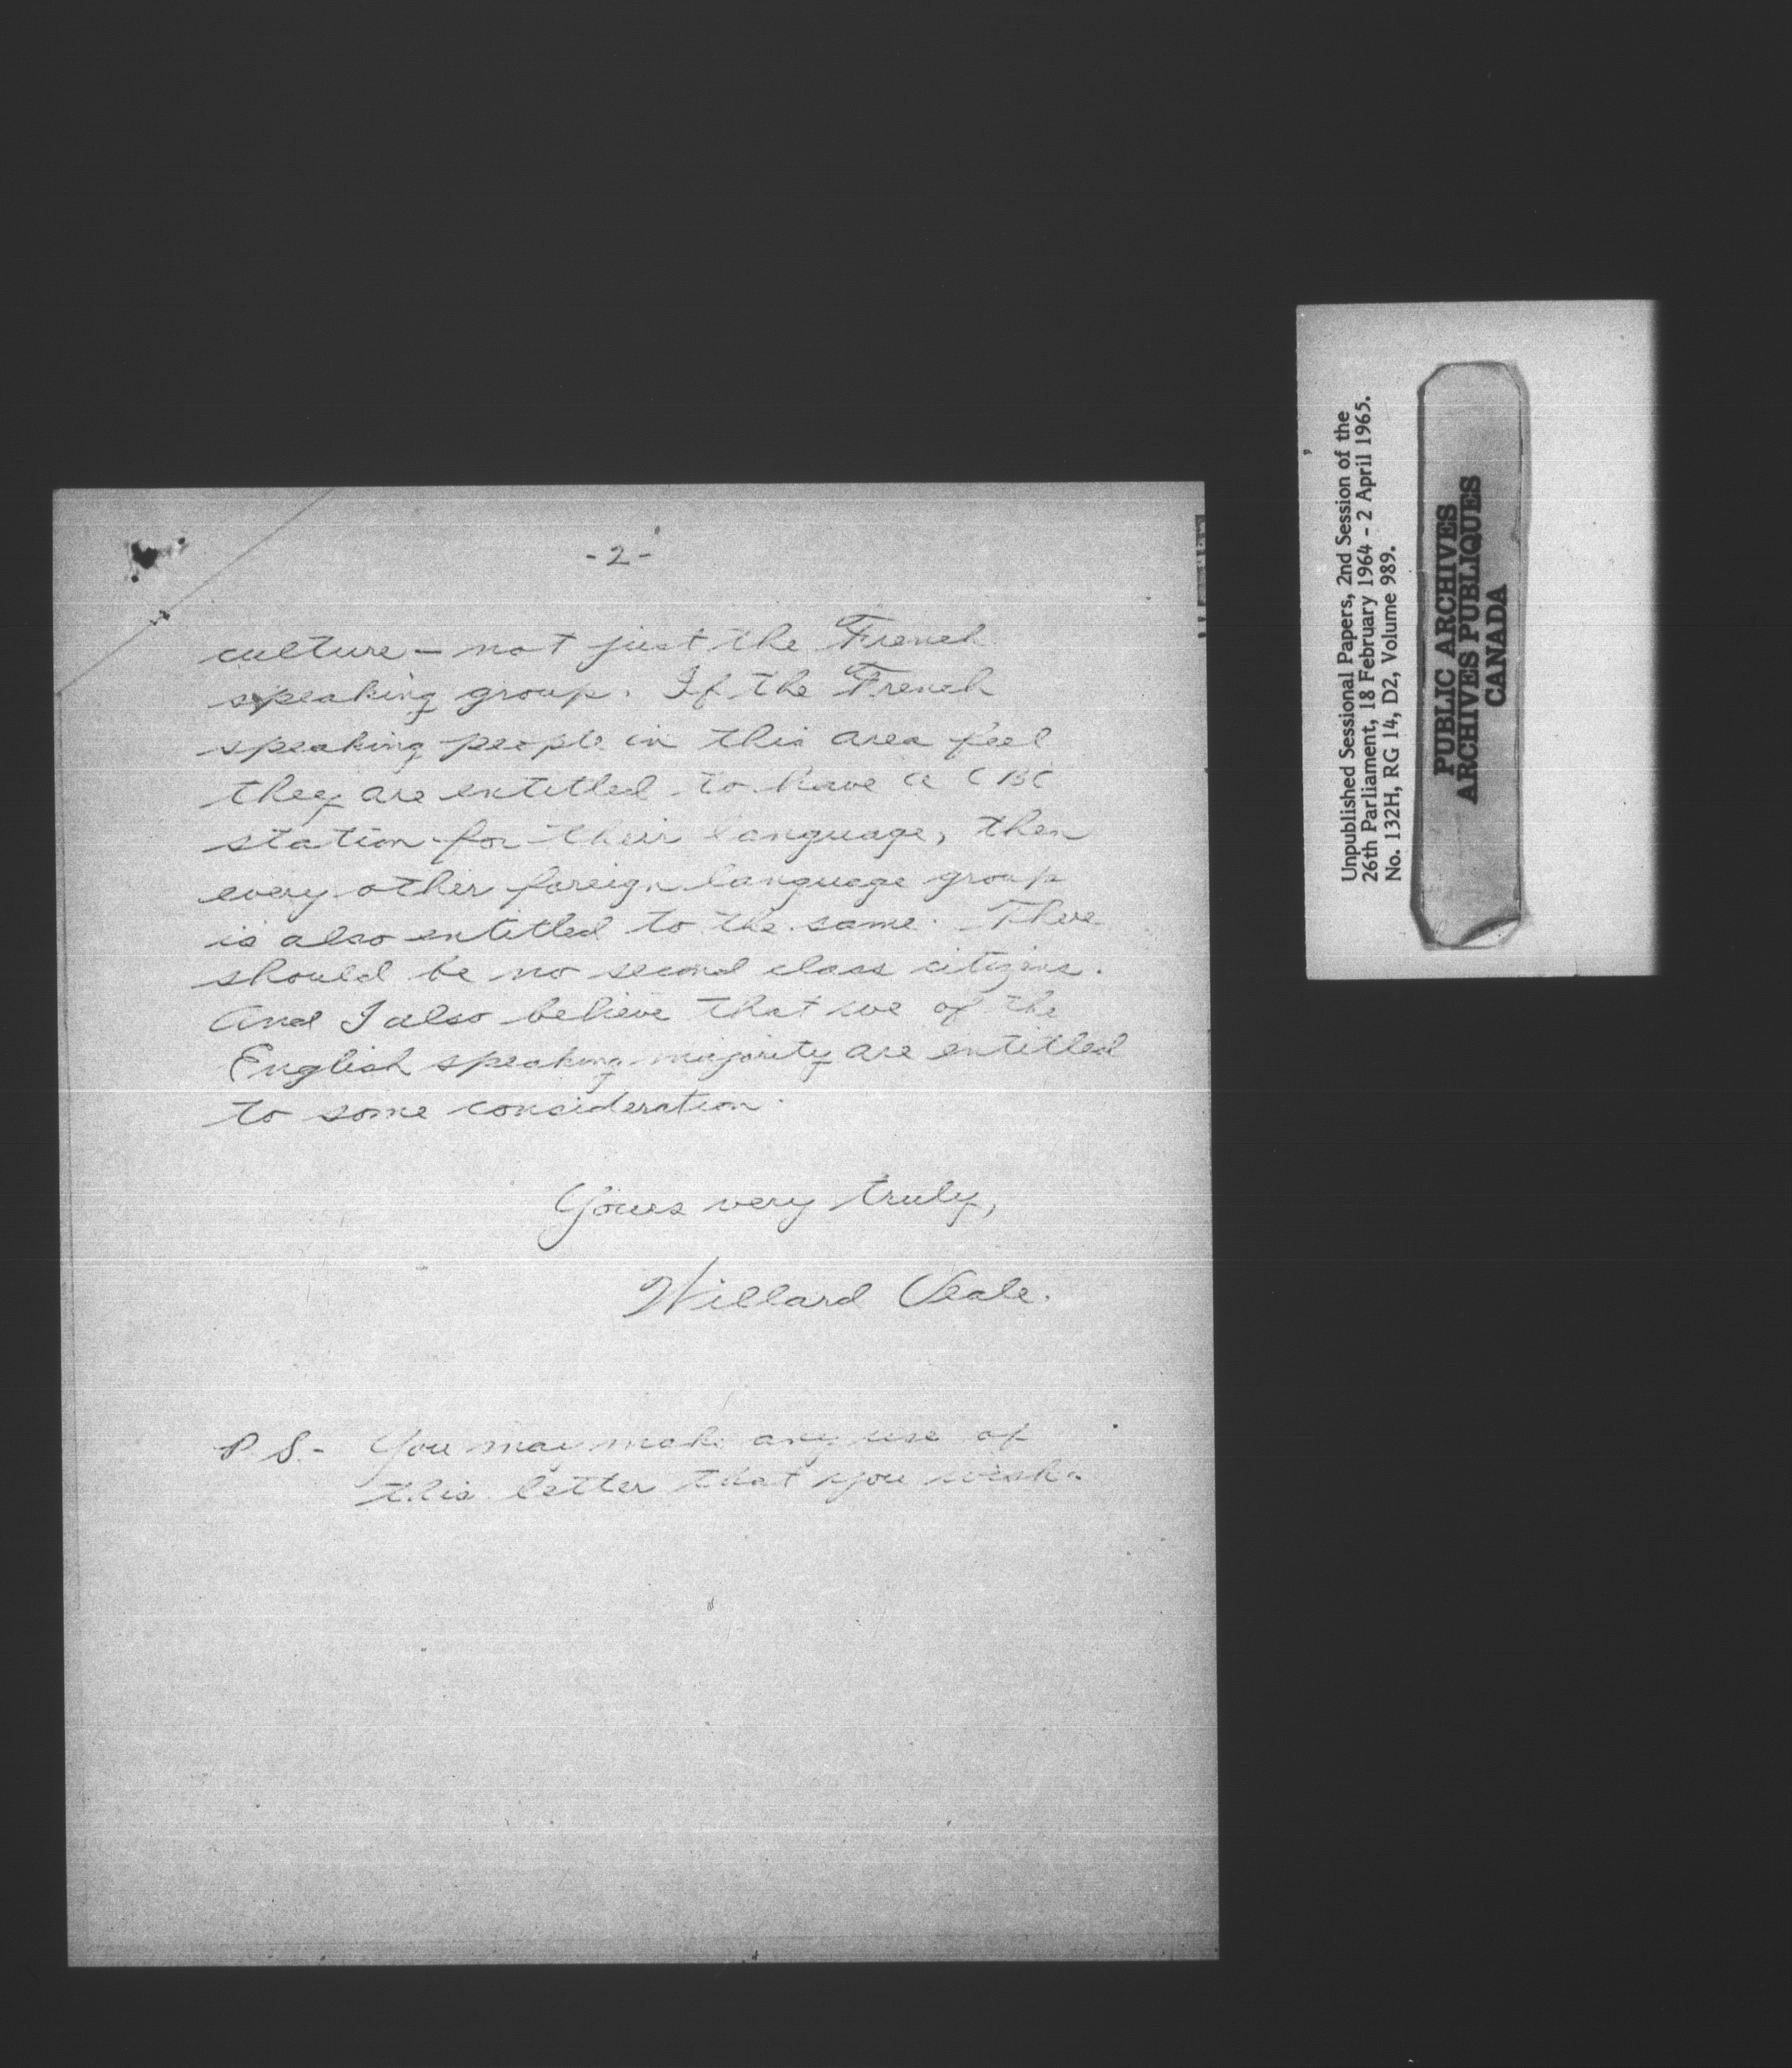 -2-
culture - not just the French
speaking group. If the French
speaking people in this area feel
they are entitled to have a CBC
station for their language, then
every other foreign language group
is also entitled to the same. There
should be no second class citizens.
And I also believe that we of the
English speaking majority are entitled
to some consideration.
Yours very truly,
Willard Veale.
P.S. - You may make any use of
this letter that you wish.
Unpublished Sessional Papers, 2nd Session of the
26th Parliament, 18 February 1964 - 2 April 1965.
No. 132H, RG 14, D2, Volume 989.
PUBLIC ARCHIVES
ARCHIVES PUBLIQUES
CANADA